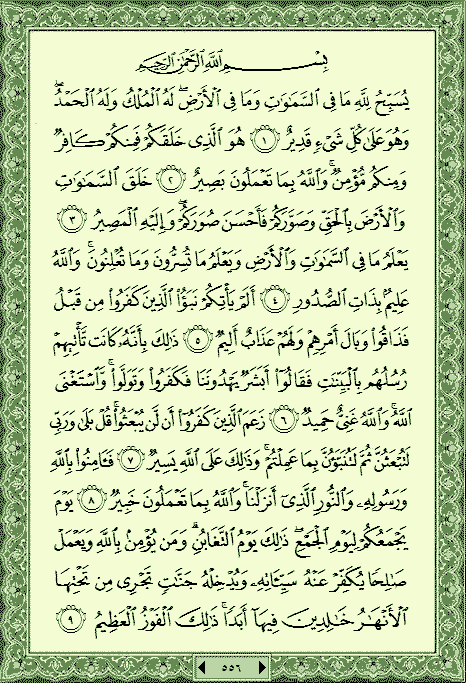 بِسْمِ اللَّهِ الرَّحْمَٰنِ الرَّحِيمِ
يُسَبِّحُ لِلَّهِ مَا فِي السَّمَٰوَٰتِ وَمَا فِي الْأَرْضِۖ لَهُ الْمُلْكُ وَلَهُ الْحَمْدُۖ
وَهُوَ عَلَىٰ كُلِّ شَيْءٍ قَدِيرٌ ١ هُوَ الَّذِي خَلَقَكُمْ فَمِنكُمْ كَافِرٌ
وَمِنكُم مُّؤْمِنٌۚ وَاللَّهُ بِمَا تَعْمَلُونَ بَصِيرٌ ٢ خَلَقَ السَّمَٰوَٰتِ
وَالْأَرْضَ بِالْحَقِّ وَصَوَّرَكُمْ فَأَحْسَنَ صُوَرَكُمْۖ وَإِلَيْهِ الْمَصِيرُ ٣
يَعْلَمُ مَا فِي السَّمَٰوَٰتِ وَالْأَرْضِ وَيَعْلَمُ مَا تُسِرُّونَ وَمَا تُعْلِنُونَۚ وَاللَّهُ
عَلِيمٌۢ بِذَاتِ الصُّدُورِ ٤ أَلَمْ يَأْتِكُمْ نَبَؤُا۟ الَّذِينَ كَفَرُوا۟ مِن قَبْلُ
فَذَاقُوا۟ وَبَالَ أَمْرِهِمْ وَلَهُمْ عَذَابٌ أَلِيمٌ ٥ ذَٰلِكَ بِأَنَّهُۥ كَانَت تَّأْتِيهِمْ
رُسُلُهُم بِالْبَيِّنَٰتِ فَقَالُوٓا۟ أَبَشَرٌ يَهْدُونَنَا فَكَفَرُوا۟ وَتَوَلَّوا۟ۚ وَّاسْتَغْنَى
اللَّهُۚ وَاللَّهُ غَنِيٌّ حَمِيدٌ ٦ زَعَمَ الَّذِينَ كَفَرُوٓا۟ أَن لَّن يُبْعَثُوا۟ۚ قُلْ بَلَىٰ وَرَبِّي
لَتُبْعَثُنَّ ثُمَّ لَتُنَبَّؤُنَّ بِمَا عَمِلْتُمْۚ وَذَٰلِكَ عَلَى اللَّهِ يَسِيرٌ ٧ فَـَٔامِنُوا۟ بِاللَّهِ
وَرَسُولِهِۦ وَالنُّورِ الَّذِيٓ أَنزَلْنَاۚ وَاللَّهُ بِمَا تَعْمَلُونَ خَبِيرٌ ٨ يَوْمَ
يَجْمَعُكُمْ لِيَوْمِ الْجَمْعِۖ ذَٰلِكَ يَوْمُ التَّغَابُنِۗ وَمَن يُؤْمِنۢ بِاللَّهِ وَيَعْمَلْ
صَٰلِحًا يُكَفِّرْ عَنْهُ سَيِّـَٔاتِهِۦ وَيُدْخِلْهُ جَنَّٰتٍ تَجْرِي مِن تَحْتِهَا
الْأَنْهَٰرُ خَٰلِدِينَ فِيهَآ أَبَدًاۚ ذَٰلِكَ الْفَوْزُ الْعَظِيمُ ٩
٥٥٦